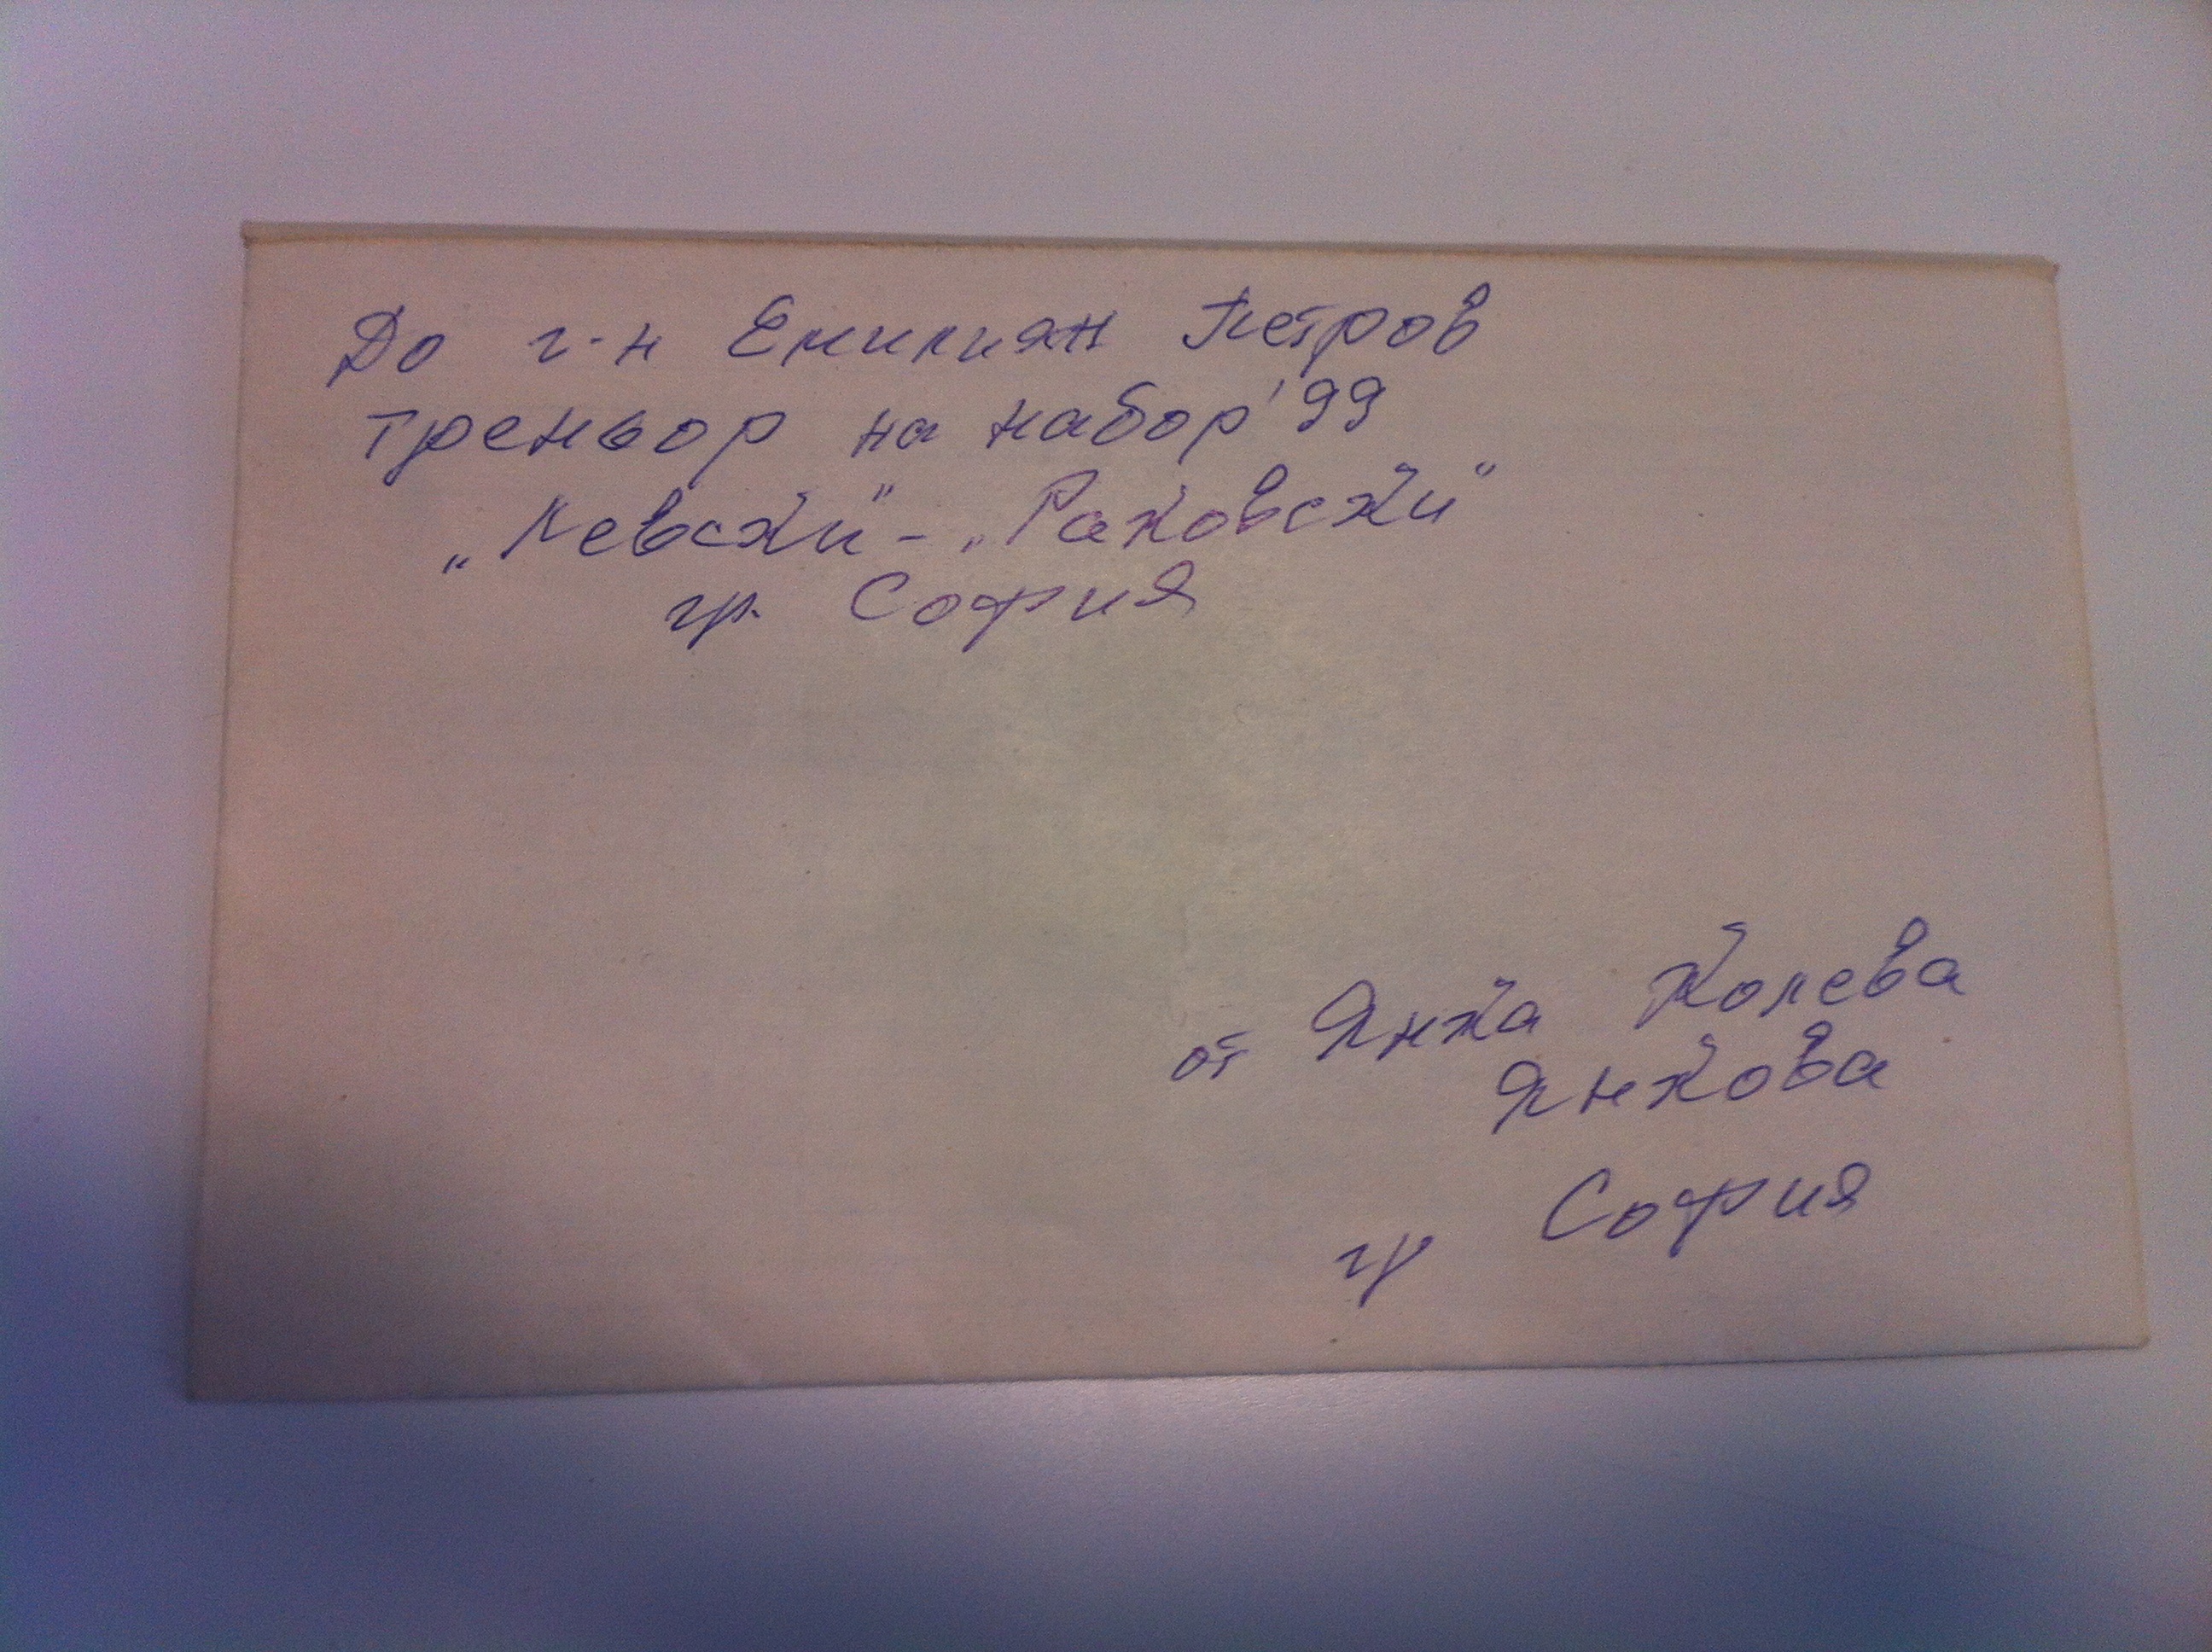 До г-н Емилиян Петров
треньор на набор '99
„Левски" - „Раковски"
гр. София
от Янка Колева
Янкова
гр София